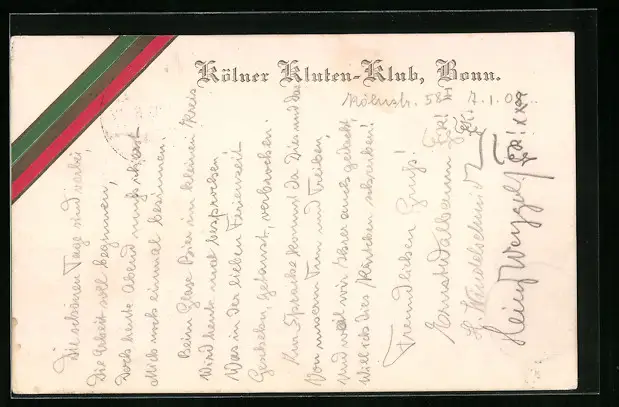 Kölner Kluten-Klub, Bonn.
Kölnstr. 58 7.1.0
Die schönen Tage sind vorbei,
Die Arbeit soll beginnen,
Doch heute Abend muß ich
Mich noch einmal besinnen.
Beim Glase Bier im kleinen Kreis
Wird heute noch besprochen
Was in der lieben Ferienzeit
Geschehen, getanzt, verbrochen.
Zur Sprache kommt da Dies und das
Von unserm Tun und Treiben,
Und weil wir Ihrer auch gedacht,
Will ich dies Kärtchen schreiben!
Freundlichen Gruß!
Ernst
Heinz